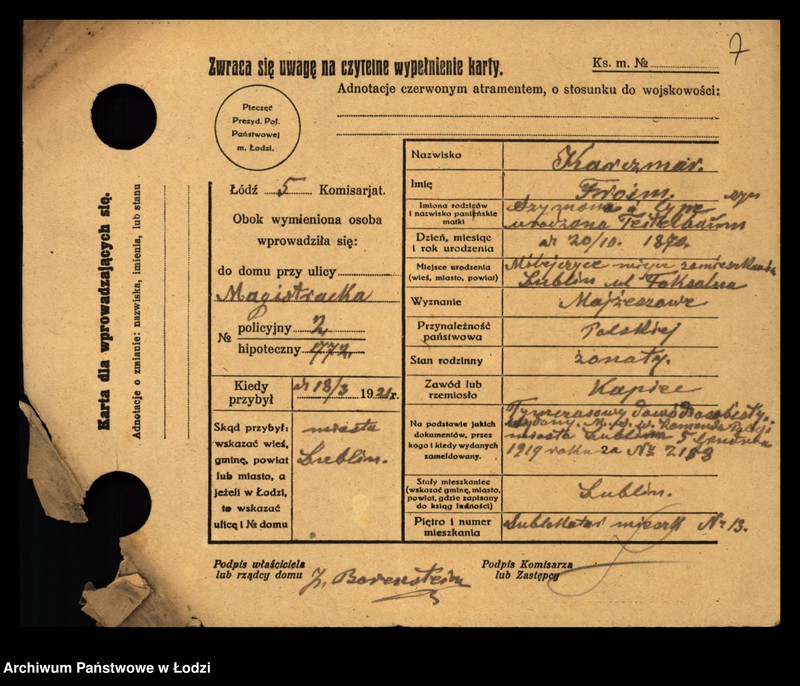 7
Zwraca się uwagę na czytelne wypełnienie karty.
Ks. m. №
Adnotacje czerwonym atramentem, o stosunku do wojskowości:
Pieczęć
Prezyd. Pol.
Państwowej
m. Łodzi.
Karta dla wprowadzających się.
Adnotacje o zmianie: nazwiska, imienia, lub stanu
Łódź 5 Komisarjat.
Obok wymieniona osoba
wprowadziła się:
do domu przy ulicy
Magistracka
№ policyjny 2
hipoteczny 772
Kiedy przybył
dn 18/3 1921 r.
Skąd przybył:
wskazać wieś,
gminę, powiat
lub miasto, a
jeżeli w Łodzi,
to wskazać
ulicę i № domu
miasta
Lublin.
Nazwisko
Karczmar.
Imię
Froim. syn
Imiona rodziców
i nazwisko panieńskie
matki
Szymona i Cypa
urodzona Teitelbaum
Dzień, miesiąc
i rok urodzenia
dn 20/10. 1870.
Miejsce urodzenia
(wieś, miasto, powiat)
zamieszkania
Lublin ul Foksalna
Wyznanie
Mojżeszowe
Przynależność
państwowa
Polskiej
Stan rodzinny
żonaty.
Zawód lub
rzemiosło
Kupiec
Na podstawie jakich
dokumentów, przez
kogo i kiedy wydanych
zameldowany.
Tymczasowy dowód osobisty.
wydany Komenda Policji
miasta Lublina 5 Grudnia
1919 roku za № 2183
Stały mieszkaniec
(wskazać gminę, miasto,
powiat, gdzie zapisany
do ksiąg ludności)
Lublin.
Piętro i numer
mieszkania
Sublokator mieszk № 13.
Podpis właściciela
lub rządcy domu
J. Borensztein
Podpis Komisarza
lub Zastępcy
Archiwum Państwowe w Łodzi